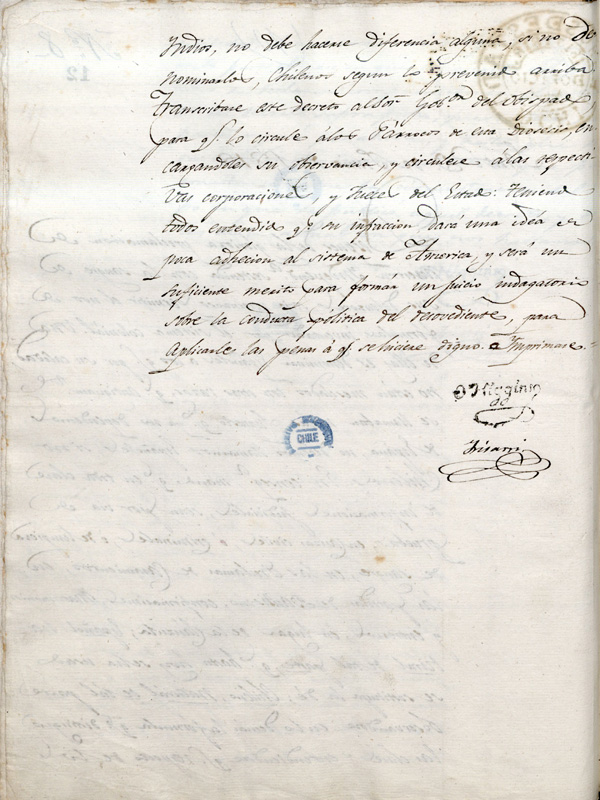 Indios, no debe hacerse diferencia alguna, si no de
nominarlos, Chilenos segun lo prevenido arriba
Transcribase este decreto al Sor. Gob.or del obispado
para q.e lo circule á los Párrocos de esta Diocecis, en
cargandoles su observancia, y circulese á las respecti
vas corporaciones, y Jueces del Estado: teniendo
todos entendido q.e su infraccion dará una idea de
poca adhecion al sistema de America, y será un
suficiente merito para formár un juicio indagatorio
sobre la conducta política del desovediente, para
aplicarle las penas á q.e se hiciere digno. Imprimase=
O'Higgins
Irisarri
CHILE